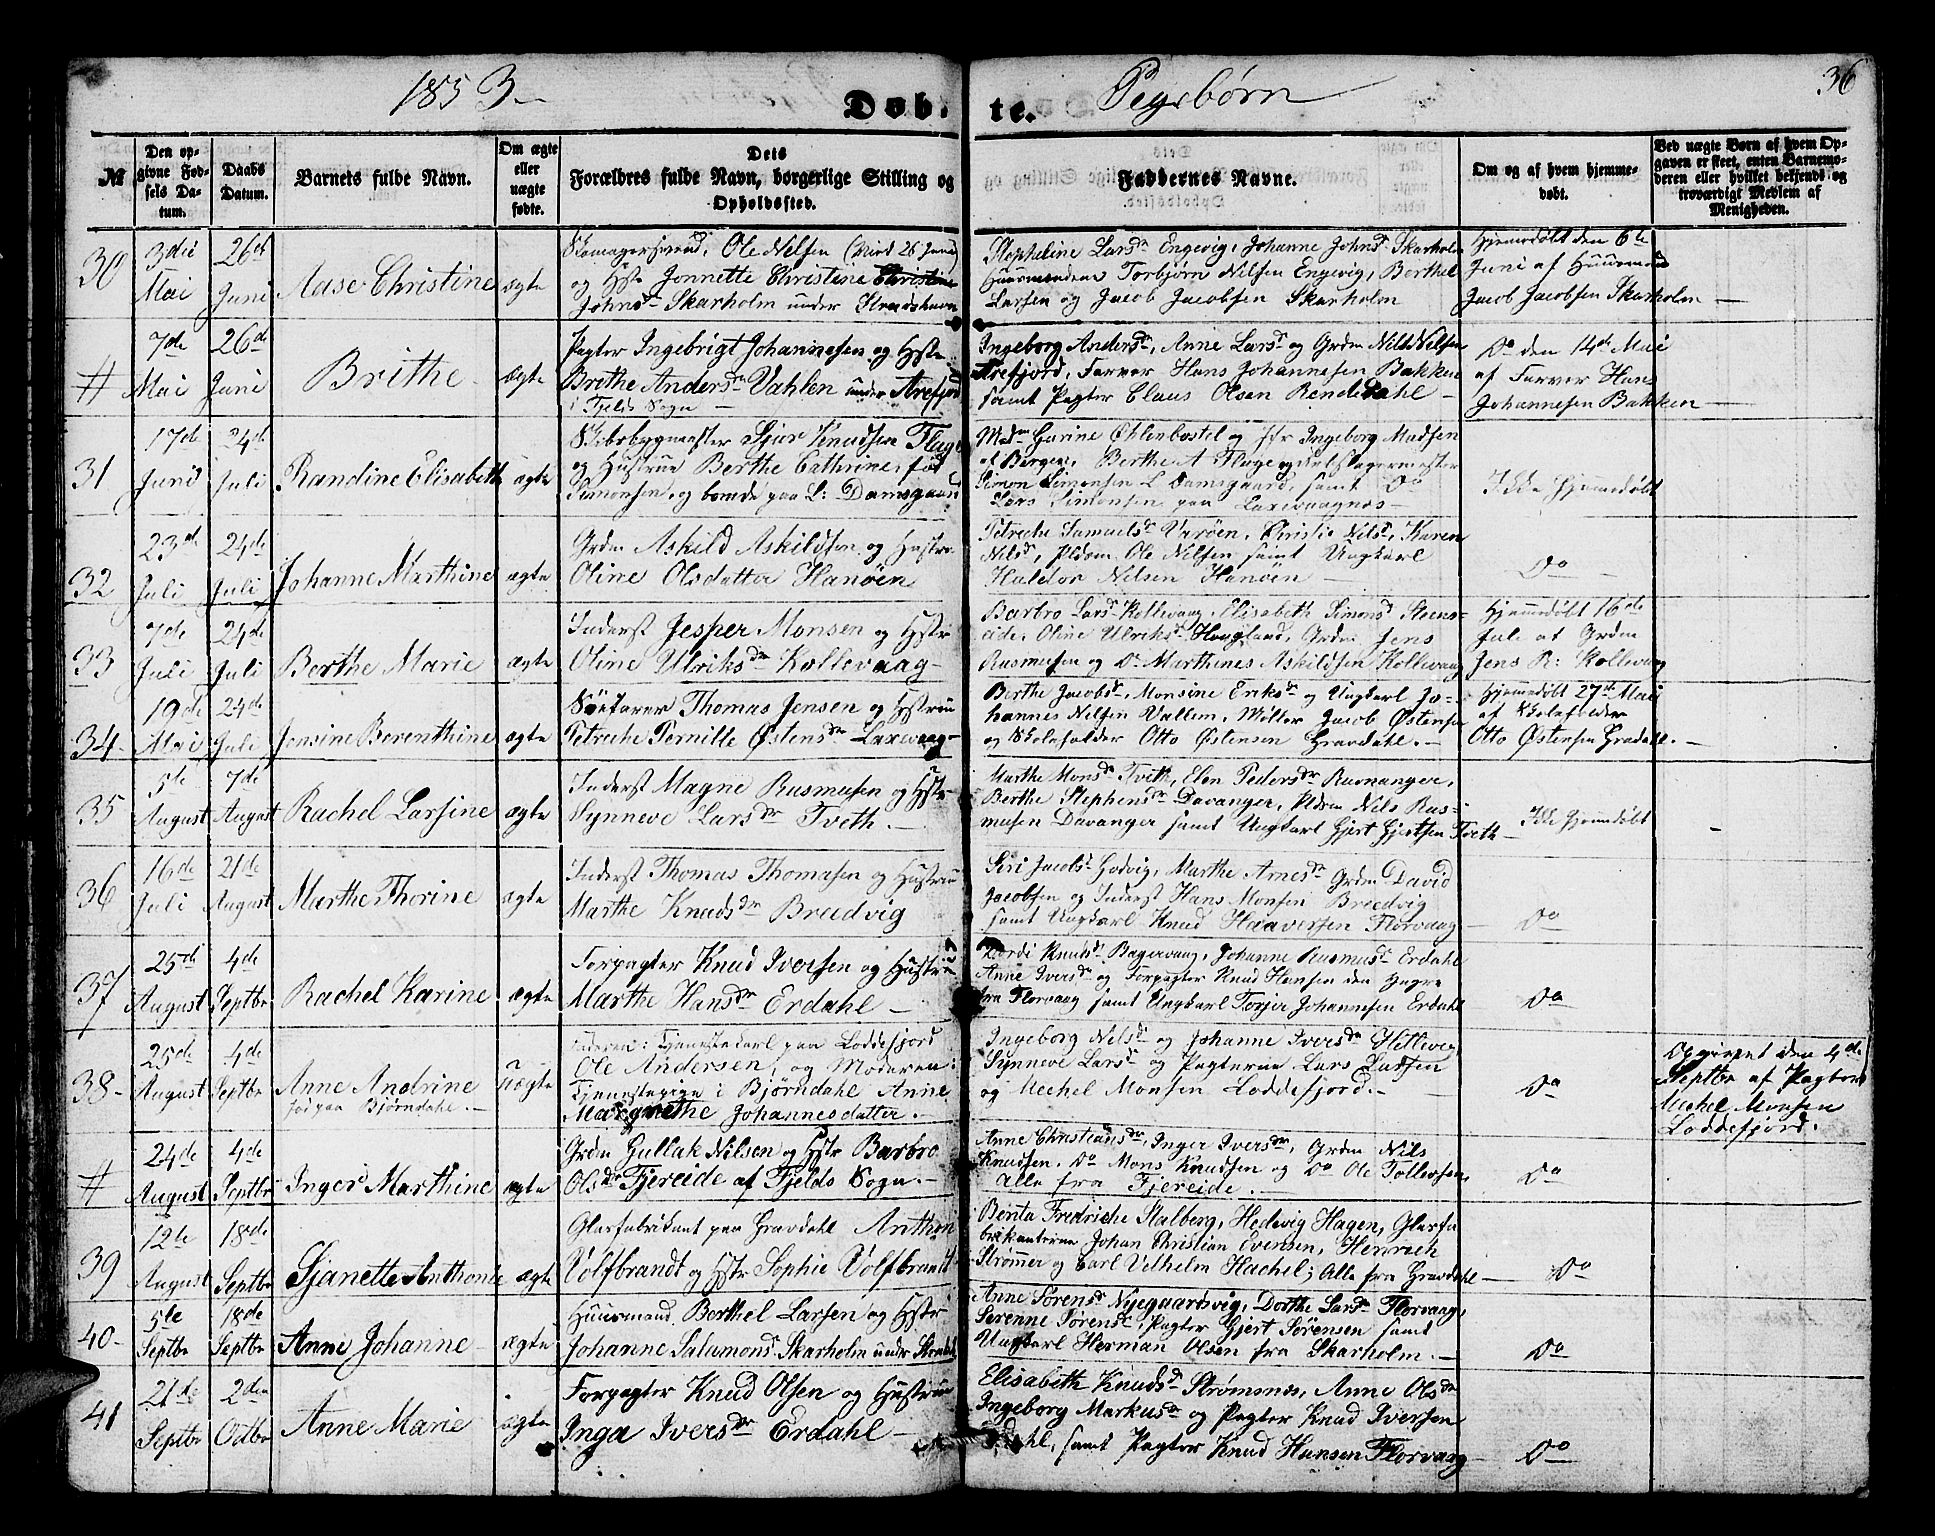 1853
Døb-
te.
Pigebørn
36
№
Den op-
givne Fød-
sels Da-
tum.
Daabs
Datum.
Barnets fulde Navn.
Om ægte
eller
uægte
fødte.
Dets
Forældres fulde Navn, borgerlige Stilling og
Opholdssted.
Faddernes Navne.
Om og af hvem hjemme-
døbt.
Ved uægte Børn af hvem Op-
gaven er skeet, enten Barnemo-
deren eller hvilket bekjendt og
troværdigt Medlem af
Menigheden.
30
3die
Mai
26de
Juni
Aase Christine
ægte
Skomagersvend, Ole Nilsen
og Hste Jonnette Christine Christine
Johnsdr Skarholm under Strudshavn
Stepheline Larsdr Engevig, Johanne Johnsdr Skarholm
Huusmændene Torbjørn Nilsen Engevig, Berthel
Larsen og Jacob Jacobsen Skarholm
Hjemmedøbt den 6te
Juni af Huusmand
Jacob Jacobsen Skarholm
#
7de
Mai
26de
Juni
Brithe
ægte
Pagter Ingebrigt Johannesen og Hste
Brithe Andersdr Vahlen under Arefjord
i Fjelds Sogn
Ingeborg Andersdr, Anne Larsdr og Grdm Nils Nilsen
Arefjord, Farver Hans Johannesen Bakken
samt Pagter Claus Olsen Rendedahl
Do den 14de Mai
af Farver Hans
Johannesen Bakken
31
17de
Juni
24de
Juli
Randine Elisabeth
ægte
Skibsbygmester Sjur Knudsen Flage
og Hustrue Berthe Cathrine, fød
Simonsen, og boende paa L: Damsgaard
Madm Gurine Øhlenbostel og Jfr Ingeborg Madsen
af Bergen, Berthe A Flage
Simon Simonsen L Damsgaard, samt Do
Lars Simonsen paa Laxevaagnæs
Ikke hjemmedøbt
32
23de
Juli
24de
Juli
Johanne Marthine
ægte
Grdm Askild Askildsen og Hustru
Oline Olsdatter Hanøen
Petriche Samuelsdr Varøen, Christie Nilsdr, Karen
Nilsdr, Pldsm Ole Nilsen samt Ungkarl
Haldor Nilsen Hanøen
Do
33
7de
Juli
24de
Juli
Berthe Marie
ægte
Inderst Jesper Monsen og Hstr
Oline Ulriksdr Kollevaag
Barbro Larsdr Kollevaag, Elisabeth Simonsdr Steens-
eide, Oline Ulriksdr Haugland, Grdm Jens
Rasmusen og Do Marthines Askildsen Kollevaag
Hjemmedøbt 16de
Juli af Grdm
Jens R: Kollevaag
34
19de
Mai
24de
Juli
Jensine Berenthine
ægte
Søefarer Thomas Jensen og Hstrue
Petriche Pernille Østensdr Laxevaag
Berthe Jacobsdr, Monsine Eriksdr og Ungkarl Jo-
hannes Nilsen Vallem, Møller Jacob Østensen
og Skoleholder Otto Østensen Gravdahl.
Hjemmedøbt 27de Mai
af Skoleholder
Otto Østensen Gravdahl.
35
5te
August
7de
August
Rachel Larsine
ægte
Inderst Magne Rasmusen og Hstr
Synneve Larsdr Tveth.
Marthe Monsdr Tveth, Elen Pedersdr Ravnanger,
Berthe Stephensdr Davanger, Pldsm Nils Ras-
musen Davanger samt Ungkarl Gjert Gjertsen Tveth
Ikke hjemmedøbt
36
16de
Juli
21de
August
Marthe Thorine
ægte
Inderst Thomas Thomasen og Hustrue
Marthe Knudsdr Bredvig
Siri Jacobsdr Hodvig, Marthe Arnesdr Grdm David
Jacobsen og Inderst Hans Monsen Bredvig
samt Ungkarl Knud Haaversen Florvaag
Do
37
25de
August
4de
Septbr
Rachel Karine
ægte
Forpagter Knud Iversen og Hustrue
Marthe Hansdr Erdahl
Gurdi Knudsdr Bagervaag, Johanne Rasmusdr Erdahl
Anne Iversdr og Forpagter Knud Hansen den yngre
fra Florvaag samt Ungkarl Torjer Johannesen Erdahl
Do
38
25de
August
4de
Septbr
Anne Andrine
fød paa Bjørndahl.
uægte
Faderen: Tjenestekarl paa Loddefjord
Ole Andersen, og Moderen:
Tjenestepige i Bjørndahl Anne
Margrethe Johannesdatter.
Ingeborg Nilsdr og Johanne Iversdr Hetlevig
Synneve Larsdr og Pagterne Lars Larsen
og Mechel Monsen Loddefjord.
Do
Opgivet den 4de
Septbr af Pagter
Mechel Monsen
Loddefjord.
#
24de
August
4de
Septbr
Inger Marthine
ægte
Grdm Gullak Nilsen og Hstr Barbro
Olsdr Fjereide af Fjelds Sogn.
Anne Christiansdr, Inger Iversdr, Grdm Nils
Knudsen, Do Mons Knudsen og Do Ole Tollevsen
Alle fra Fjereide.
Do
39
12te
August
18de
Septbr
Sjanette Anthonie
ægte
Glasfabrikant paa Gravdahl Anthon
Volfbrandt og Hstr Sophie Volfbrandt
Benta Fredriche Stalberg, Hedevig Hagen, Glasfa
brikanterne Johan Christian Evensen, Henrich
Strømmer og Carl Vilhelm Hachel; Alle fra Gravdahl
Do
40
5te
Septbr
18de
Septbr
Anne Johanne
ægte
Huusmand Berthel Larsen og Hstr
Johanne Salamonsdr Skarholm under Strudsh
Anne Sørensdr Nyegaardsvig, Dorthe Larsdr Florvaag,
Serenne Sørensdr, Pagter Gjert Sørensen samt
Ungkarl Herman Olsen fra Skarholm.
Do
41
21de
Septbr
2den
Octbr
Anne Marie
ægte
Forpagter Knud Olsen og Hustrue
Inga Iversdr Erdahl
Elisabeth Knudsdr Strømsnæs, Anne Olsdr
Ingeborg Markusdr og Pagter Knud Iversen
Erdahl, samt Pagter Knud Hansen Florvaag
Do